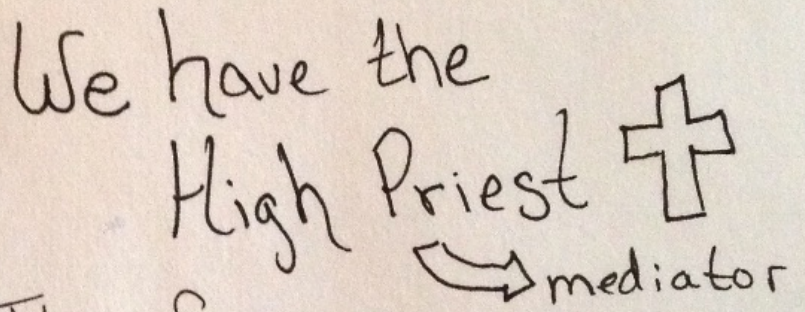 We have the
High Priest
mediator